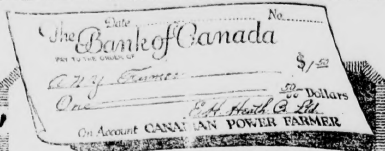 Date No.
The Bank of Canada
PAY TO THE ORDER OF
Any Farmer $1.50
One 50/00 Dollars
E.H. Heath Co. Ltd.
On Account CANADIAN POWER FARMER